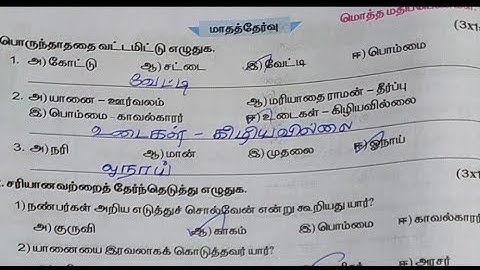 மாதத்தேர்வு
மொத்த
பொருந்தாததை வட்டமிட்டு எழுதுக. (3x1
1. அ) கோட்டு ஆ) சட்டை இ) வேட்டி ஈ) பொம்மை
வேட்டி
2. அ) யானை - ஊர்வலம் ஆ) மரியாதை ராமன் - தீர்ப்பு
இ) பொம்மை - காவல்காரர் ஈ) உடைகள் - கிழியவில்லை
உடைகள் - கிழியவில்லை
3. அ) நரி ஆ) மான் இ) முதலை ஈ) ஓநாய்
ஓநாய்
. சரியானவற்றைத் தேர்ந்தெடுத்து எழுதுக. (3x1
1) நண்பர்கள் அறிய எடுத்துச் சொல்வேன் என்று கூறியது யார்?
அ) குருவி ஆ) காகம் இ) பொம்மை ஈ) காவல்காரர்
2) யானையை இரவலாகக் கொடுத்தவர் யார்?
ஈ) அரசர்